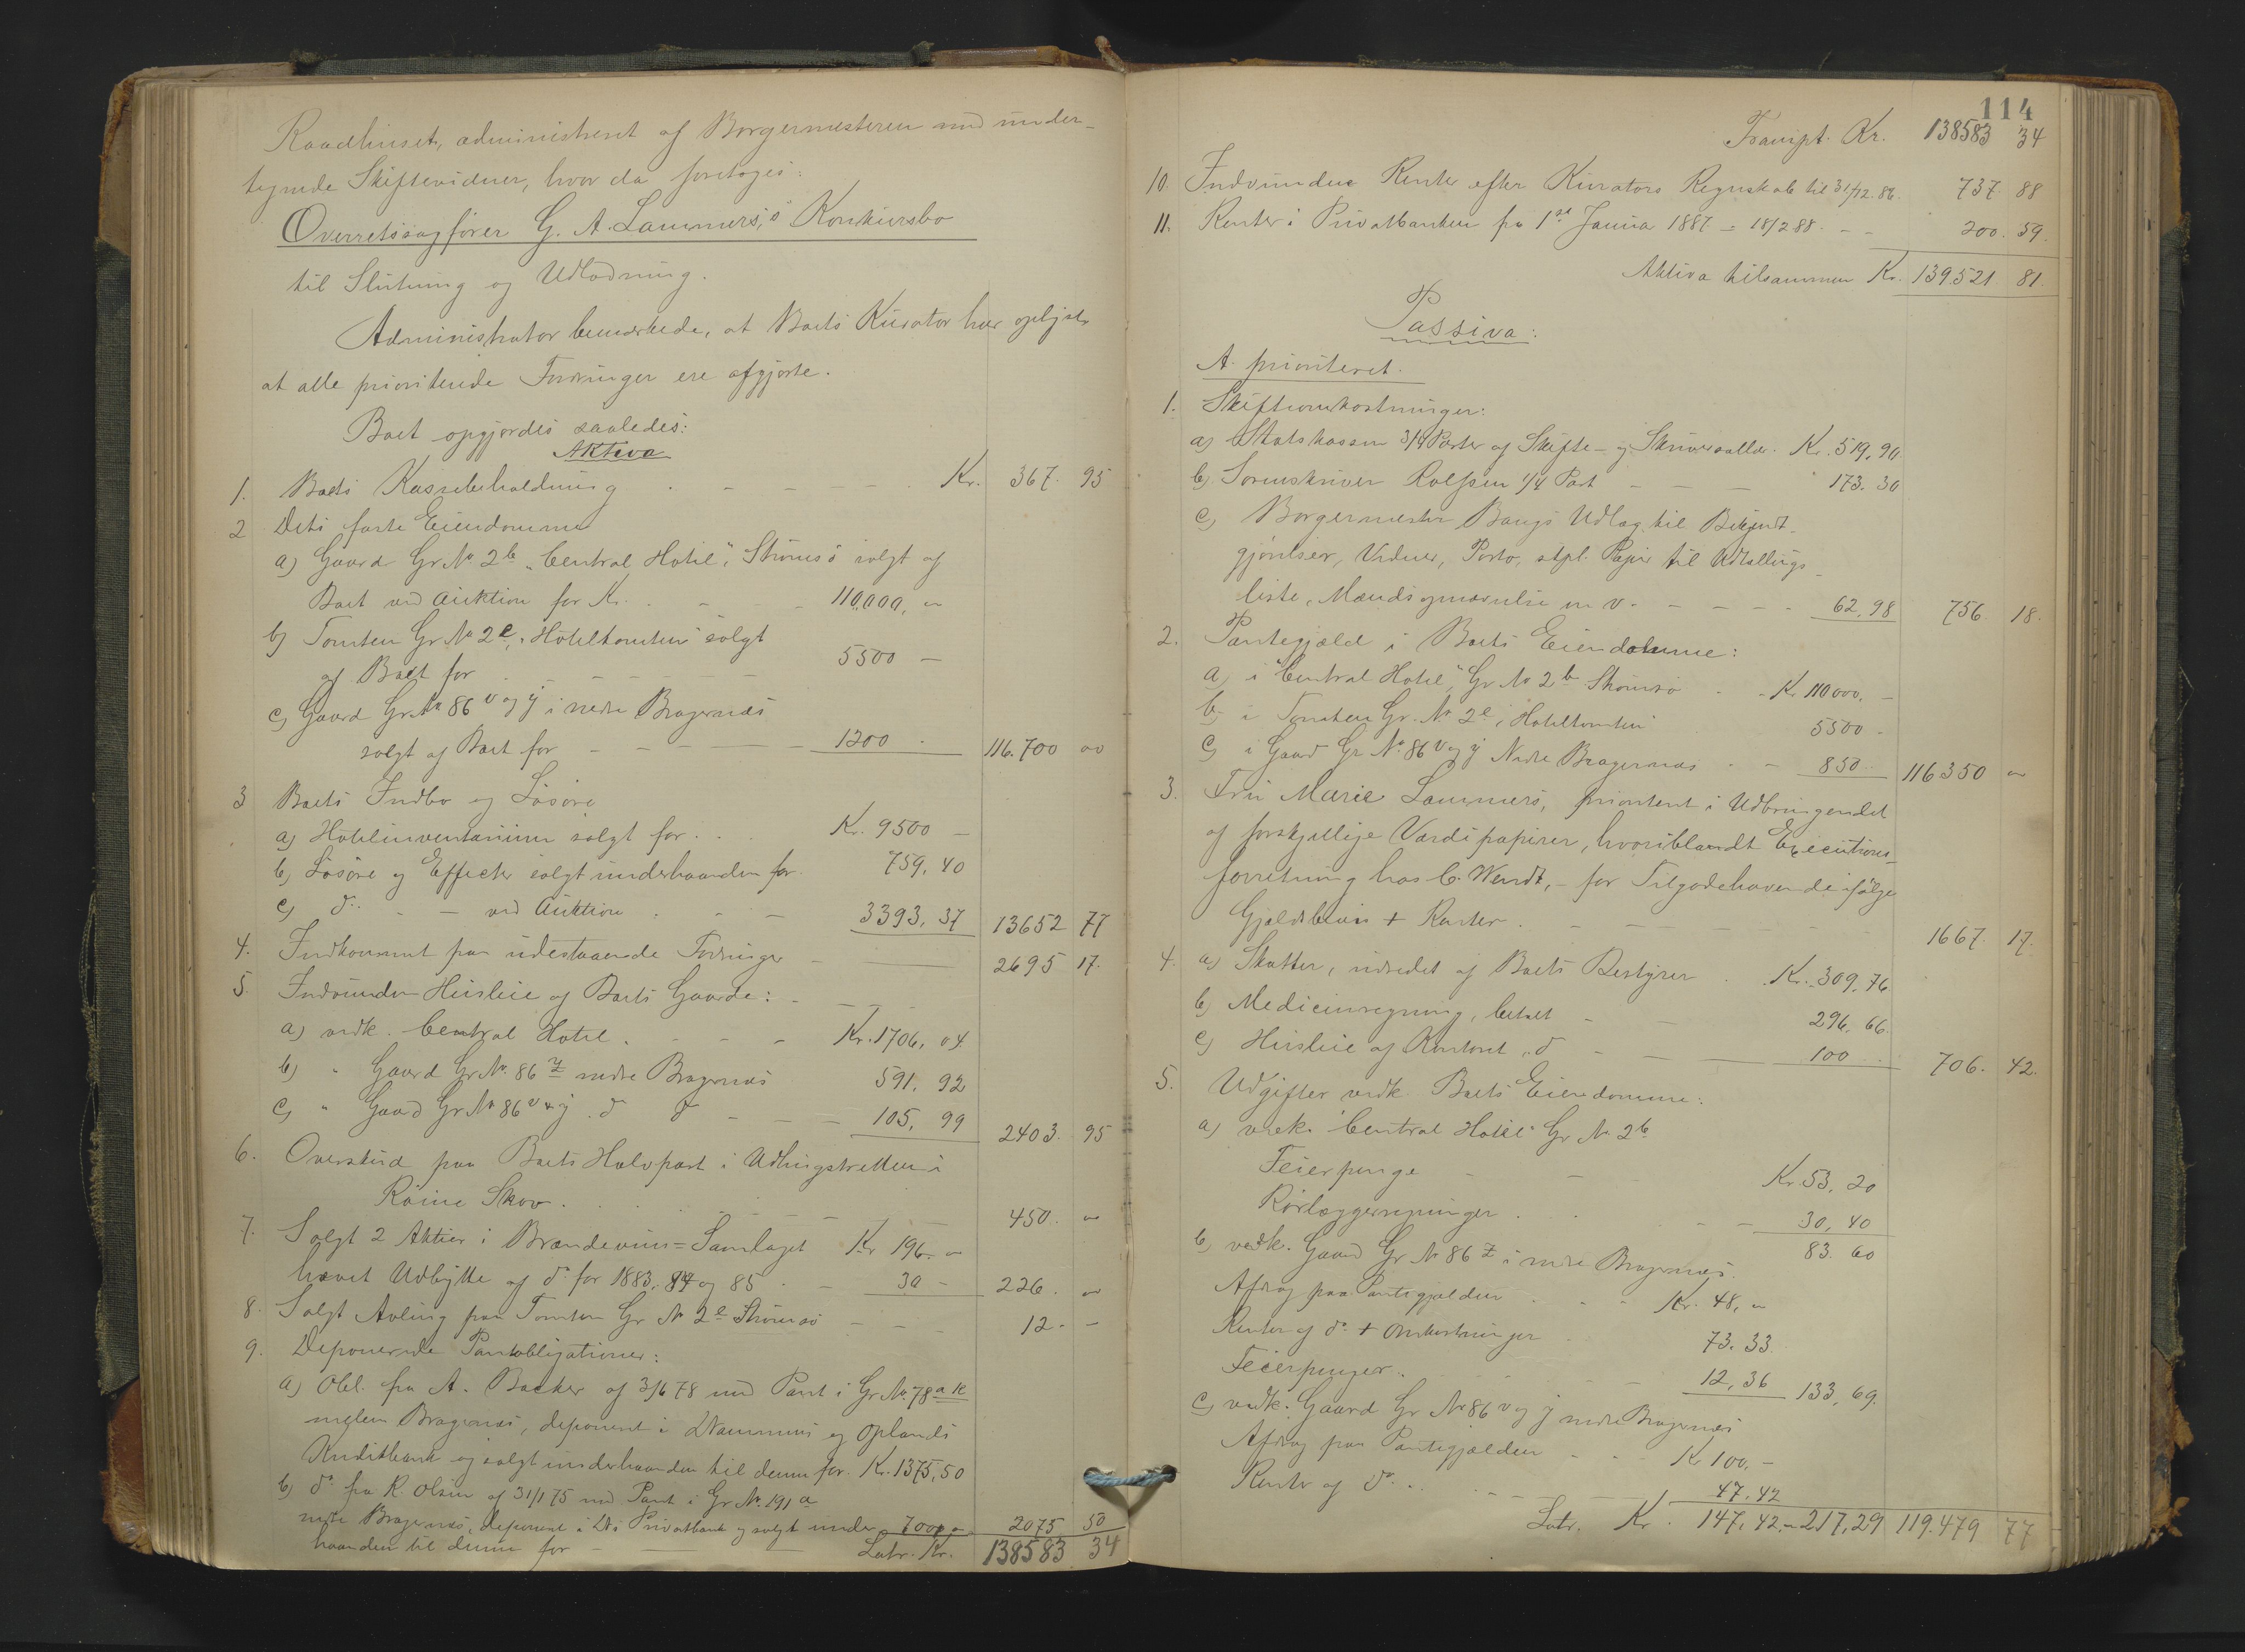 Raadhuset, administreret af Borgermesteren med under-
tegnede Skiftevidner, hvor da foretoges:
Overretssagfører G. A. Lammers's Konkursbo
til Slutning og Udlodning.
Administrator bemærkede, at Boets Kurator har oplyst
at alle prioriterede Fordringer ere afgjorte.
Boet opgjordes saaledes:
Aktiva
1. Boets Kassebeholdning . - - - - - Kr. 367. 95
2 Dets faste Eiendomme
a) Gaard Gr No 2b "Central Hotel", Strømsø solgt af
Boet ved Auktion for Kr. . - - 110,000, "
b) Tomten Gr No 2e, "Hoteltomten" solgt
af Boet for - - - - - 5500 -
c) Gaard Gr No 86 v og y i nedre Bragernæs
solgt af Boet for - - - - - 1200 . 116.700 00
3 Boets Indbo og Løsøre
a) Hotelinventarium solgt for . . Kr. 9500 -
b) Løsøre og Effecter solgt underhaanden for 759, 40
c) do. - - ved Auktion . - - 3393, 37 13652 77
4. Indkommet paa udestaaende Fordringer - 2695 17.
5. Indvunden Husleie af Boets Gaarde: - - - -
a) vedk. Central Hotel . - - - Kr. 1706, 04
b) " Gaard Gr No. 86 z nedre Bragernæs 591, 92
c) " Gaard Gr No 86 v & y . do do - - - 105, 99 2403. 95
6. Overskud paa Boets Halvpart i
Skov . . . . - - - 450. "
7. Solgt 2 Aktier i Brændevins=Samlaget Kr 196. "
hævet Udbytte af do for 1883, 84 og 85 . - 30 - 226. "
8. Solgt Avling paa Tomten Gr No 2e Strømsø - - - 12. -
9. Deponerede Pantobligationer:
a) Obl. fra A. Backer af 3/6 78 med Pant i Gr No. 78 a k
mellem Bragernæs, deponeret i Drammens og Oplands
Kreditbank og solgt underhaanden til denne for. Kr. 1375,50
b) do fra R. Olsen af 31/1 75 med Pant i Gr No. 191 a
nedre Bragernæs, deponeret i Ds Privatbank og solgt under 700, " 2075 50
haanden til denne for - Latr. Kr. 138583 34
114
Transpt. Kr. 138583 34
10. Indvundne Renter efter Kurators Regnskab til 31/12. 86. 737. 88
11. Renter i Privatbanken fra 1ste Januar 1887 - 18/2 88. - - 200. 59.
Aktiva tilsammen Kr. 139.521 81.
Passiva:
A. prioriteret.
1. Skifteomkostninger:
a) Statskassen 3/4 Parter af Skifte- og Skriversaller. Kr. 519, 90
b) Sorenskriver Rolfsen 1/4 Part - - - 173. 30
c) Borgermester Bangs Udlæg til Bekjendt-
gjørelser, Vidner, Porto, stpl. Papir til Udtællings-
liste, Mandsopnævnelse m v. - - - - - 62, 98 756. 18.
2. Pantegjæld i Boets Eiendomme:
a) i "Central Hotel", Gr No 2b Strømsø - - Kr 110000. -
b) i Tomten Gr. No 2e, "Hoteltomten" 5500 -
c) i Gaard Gr No. 86 v og y Nedre Bragernæs - - 850 116350 "
3. Fru Marie Lammers, prioriteret i Udbringendet
af forskjellige Værdipapirer, hvoriblandt Executions-
forretning hos C. Wendt, - for Tilgodehavende ifølge
Gjeldsbevis + Renter . - - - - - 1667. 17.
4. a) Skatter, udredet af Boets Bestyrer . Kr. 309, 76
b) Medicinregning, betalt - - 296, 66.
c) Husleie af Kontoret, do - - 100 . 706. 42.
5. Udgifter vedk. Boets Eiendomme:
a) vedk. "Central Hotel" Gr No. 2b
Feierpenge - - - Kr. 53, 20
Rørlæggerregninger . . - - 30, 40
83. 60
b) vedk. Gaard Gr No 86 z i nedre Bragernæs.
Afdrag paa Pantegjælden . - - Kr. 48, "
Renter af do. + Omkostninger . 73. 33.
Feierpenger. . - - - 12, 36 133, 69.
c) vedk. Gaard Gr No 86 v og y nedre Bragernæs
Afdrag paa Pantegjælden - - - Kr 100, -
Renter af do. . - - - 47. 42
Latr. Kr. 147, 42, " 217, 29 119.479 77